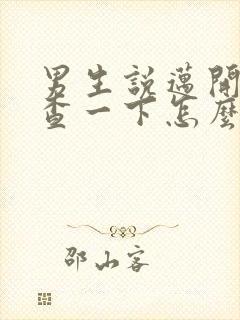 男生說邁開
查一下怎麼
邵山客